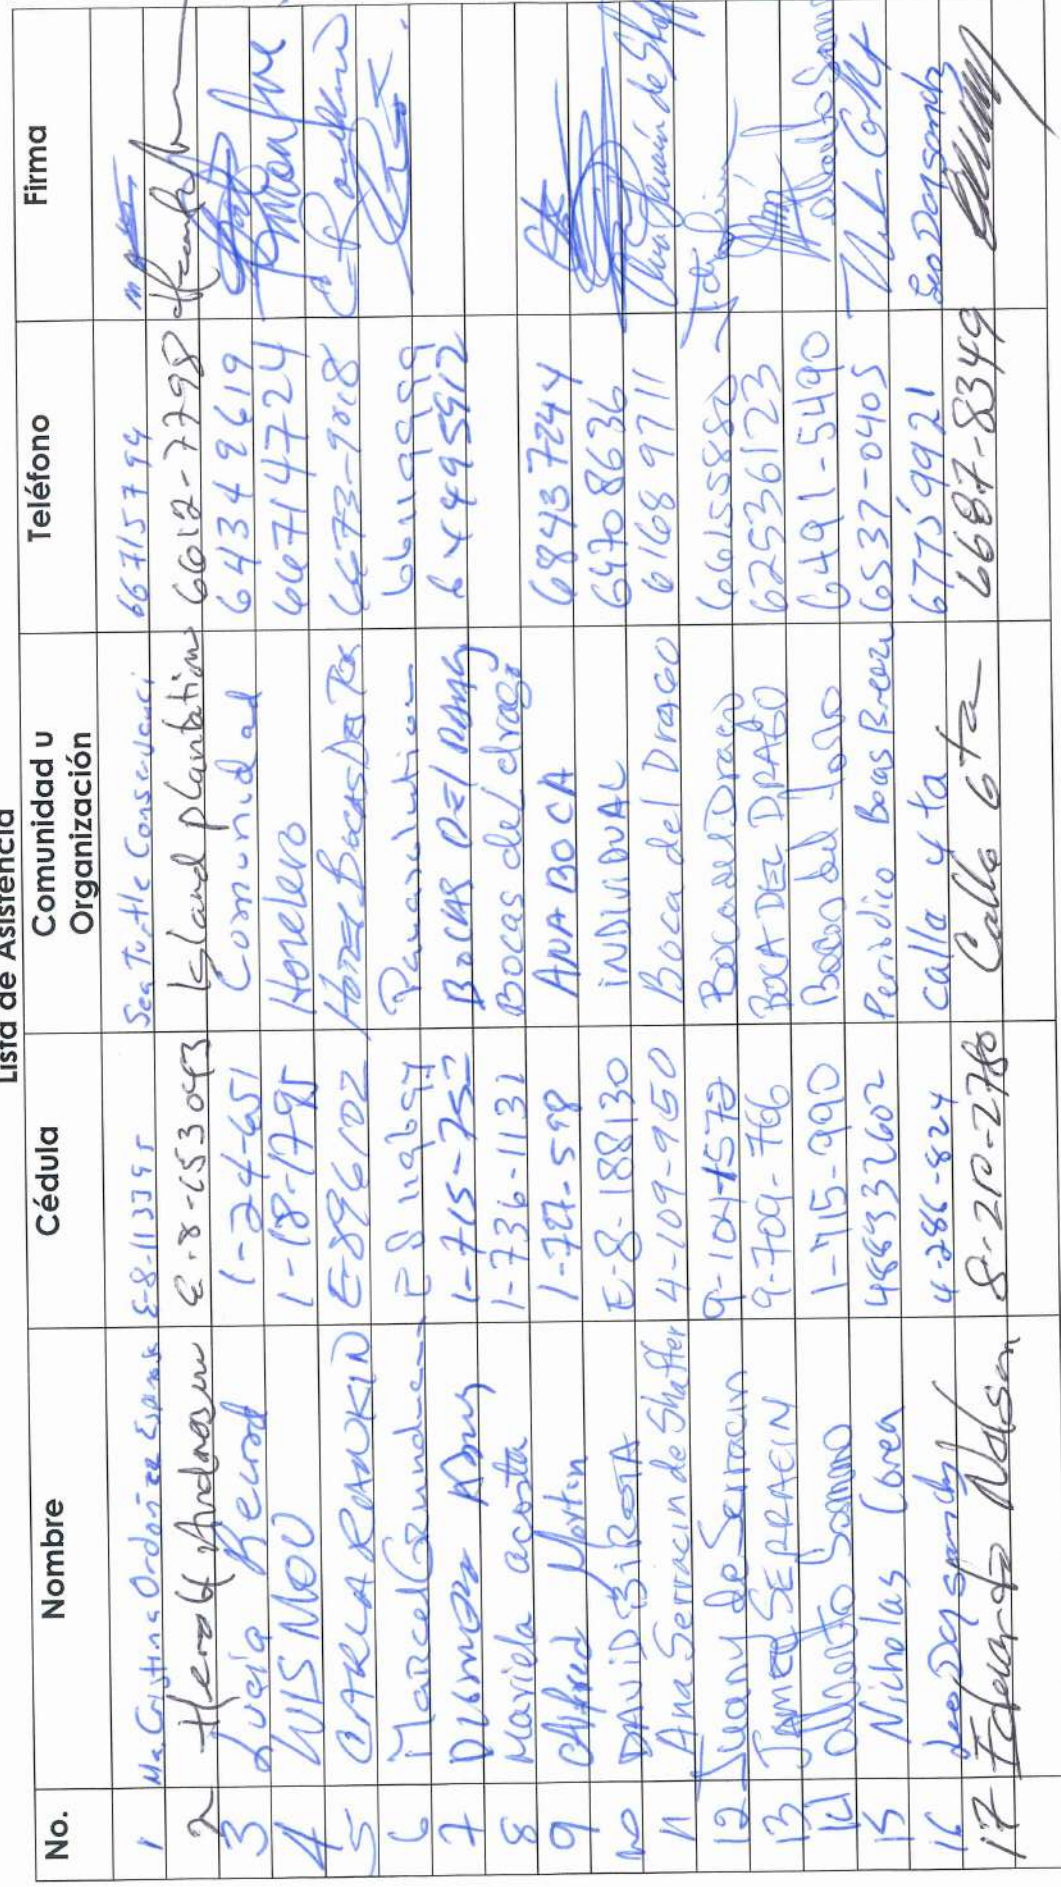 Lista de Asistencia
No. Nombre Cédula Comunidad u Organización Teléfono Firma
1 Ma. Cristina Ordoñez Espinosa E-8-113395 Sea Turtle Conservanci 66715794
2 Anderson E-8-153093 Island plantation 6612-7798
3 Lucía Becerra 1-24-651 Comunidad 64349619
4 LUIS MOU 1-18-1795 Hotelero 66714724
5 CARLA RANKIN E-896102 Hotel Bocas Del Toro 6673-9018 C. Rankin
6 Marcel 66119199
7 1-715-752 BOCAS DEL 64495912
8 Mariela acosta 1-736-1131 Bocas del drago
9 Alfred Morton 1-727-598 ANABOCA 68437244
10 DAVID BiROTA E-8-188130 INDIVIDUAL 64708636
11 Ana Serracin de Shaffer 4-109-950 Boca del Drago 61689711 Ana Serracín de Shaffer
12 Juany de Serracin 9-104-1572 Boca del Drago 66155880
13 JAMED SERRACIN 9-709-766 BOCA DEL DRAGO 62536123
14 Alberto 1-715-990 Bocas del toro 6491-5490
15 Nicholas Corea 488932602 Periódico Bocas Breeze 6537-0405
16 Leo Dorsandy 4-286-824 Calla 4ta 67759921
17 Eduardo Nelson 8-210-2780 Calle 6ta 6687-8349